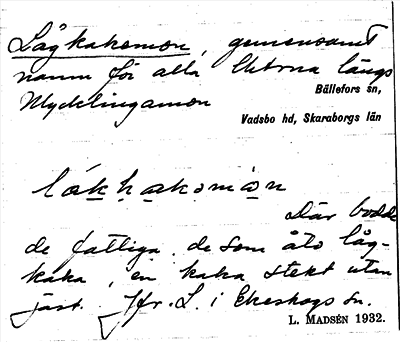 Lågkakomon, gemensamt
namn för alla
längs
Mycklingamon
Bällefors sn,
Vadsbo hd, Skaraborgs län
Där bodde
de fattiga, de som åto låg-
kaka, en kaka stekt utan
jäst. Jfr. L. i Ekeskogs sn.
L. MADSÉN 1932.